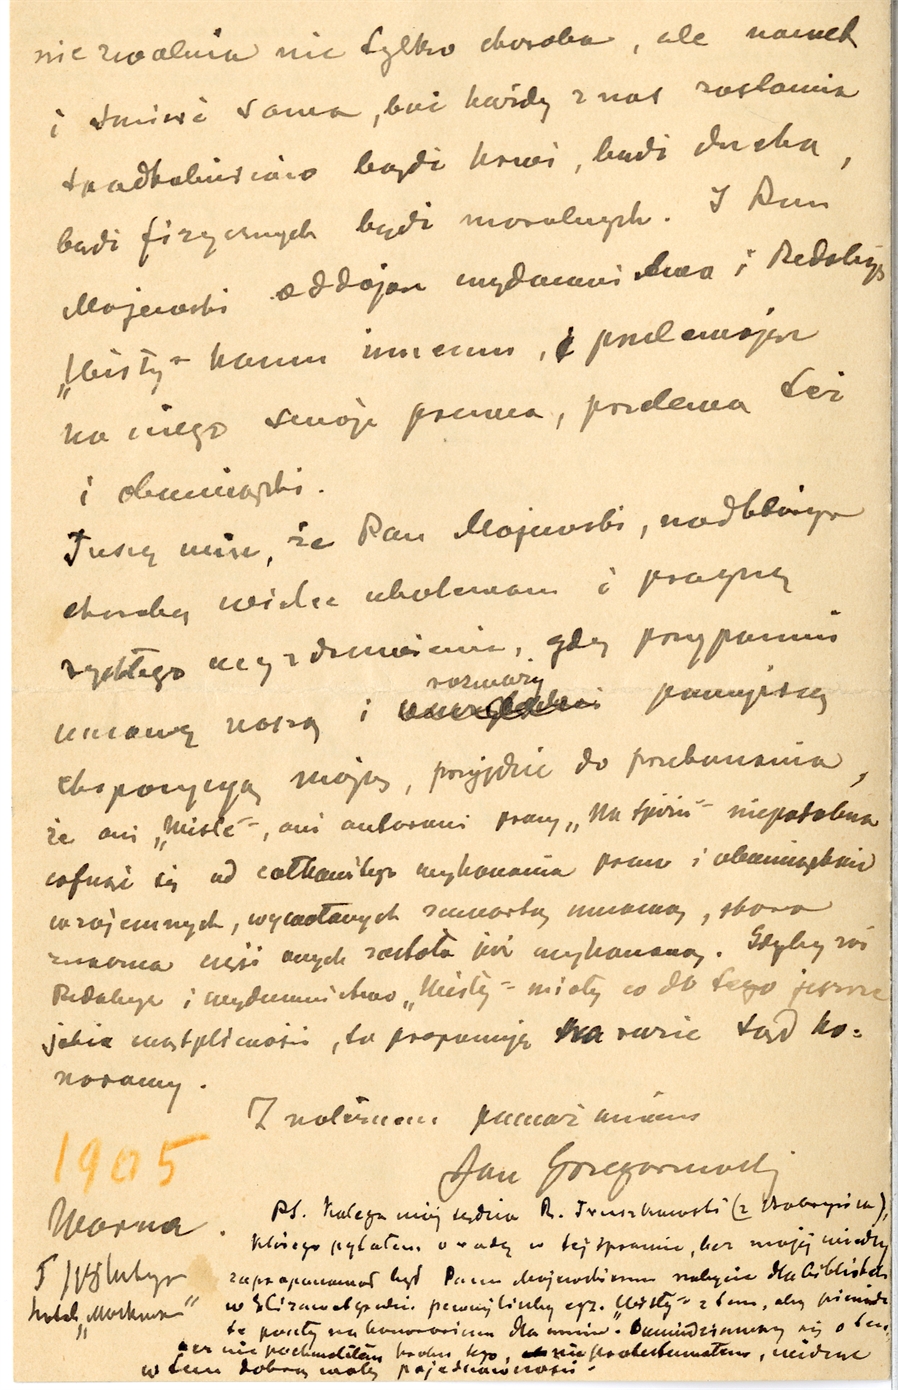 nie zwalnia nie tylko choroba, ale nawet
i śmierć sama, boć każdy z nas zostawia
spadkobierców bądź krwi, bądź ducha,
bądź fizycznych bądź moralnych. I Pan
Majewski oddając wydawnictwo i Redakcję
„Wisły" komu innemu, przelewając
na niego swoje prawa, przelewa też
i obowiązki.
Tuszę więc, że Pan Majewski, nad którego
chorobą wielce ubolewam i pragnę
rychłego wyzdrowienia, gdy przypomni
umowę naszą i rozważy powyższą
ekspozycyę moją, przyjdzie do przekonania,
że ani „Wiśle", ani autorowi pracy „Na Spiżu" niepodobna
cofnąć się od całkowitego wykonania praw i obowiązków
wzajemnych, wywołanych zawartą umową, skoro
znaczna część onych została już wykonaną. Gdyby zaś
Redakcya i wydawnictwo „Wisły" miały co do tego jeszcze
jakie wątpliwości, to proponuję na razie sąd ho-
norowy.
Z należnem poważaniem
Jan Grzegorzewski
1905
Warna
5/18 lutego
hotel „Moskwa"
PS. Kolega mój sędzia R. Truszkowski (z
którego pytałem o radę w tej sprawie, bez mojej wiedzy
zaproponował był Panu Majewskiemu nabycie dla biblioteki
w Elizawetgradzie pewnej liczby egz. „Wisły" z tem, aby pieniądze
te poszły na honorarium dla mnie. Dowiedziawszy się o tem,
nie pochwaliłem kroku tego, nie protestowałem, widząc
w tem dobrą wolę pojednawczości.